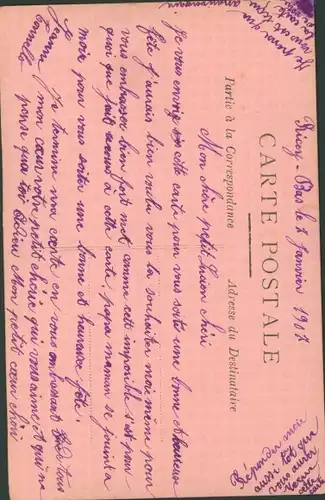 Ricey-Bas le 7 Janvier 1907
CARTE POSTALE
Partie à la Correspondance Adresse du Destinataire
Mon chère petit Lucien chéri
Je vous envoie cette carte pour vous soite une bonne et heureuse
fête j'aurais bien voulu vous la souhaiter moi même pour
vous embrasser bien fort met comme cets impossible s'est pour
quoi que fait envois cette carte papa maman se joint a
moi pour vous soiter une bonne et heureuse fête.
Je termine ma carte en vous embrassant tous
mon cœur votre petit chérie qui vous aime et qui ne
pense qua toi Adieu Mon petit cœur chéri
Répondez moi
aussi tot que
vous aurez
carte